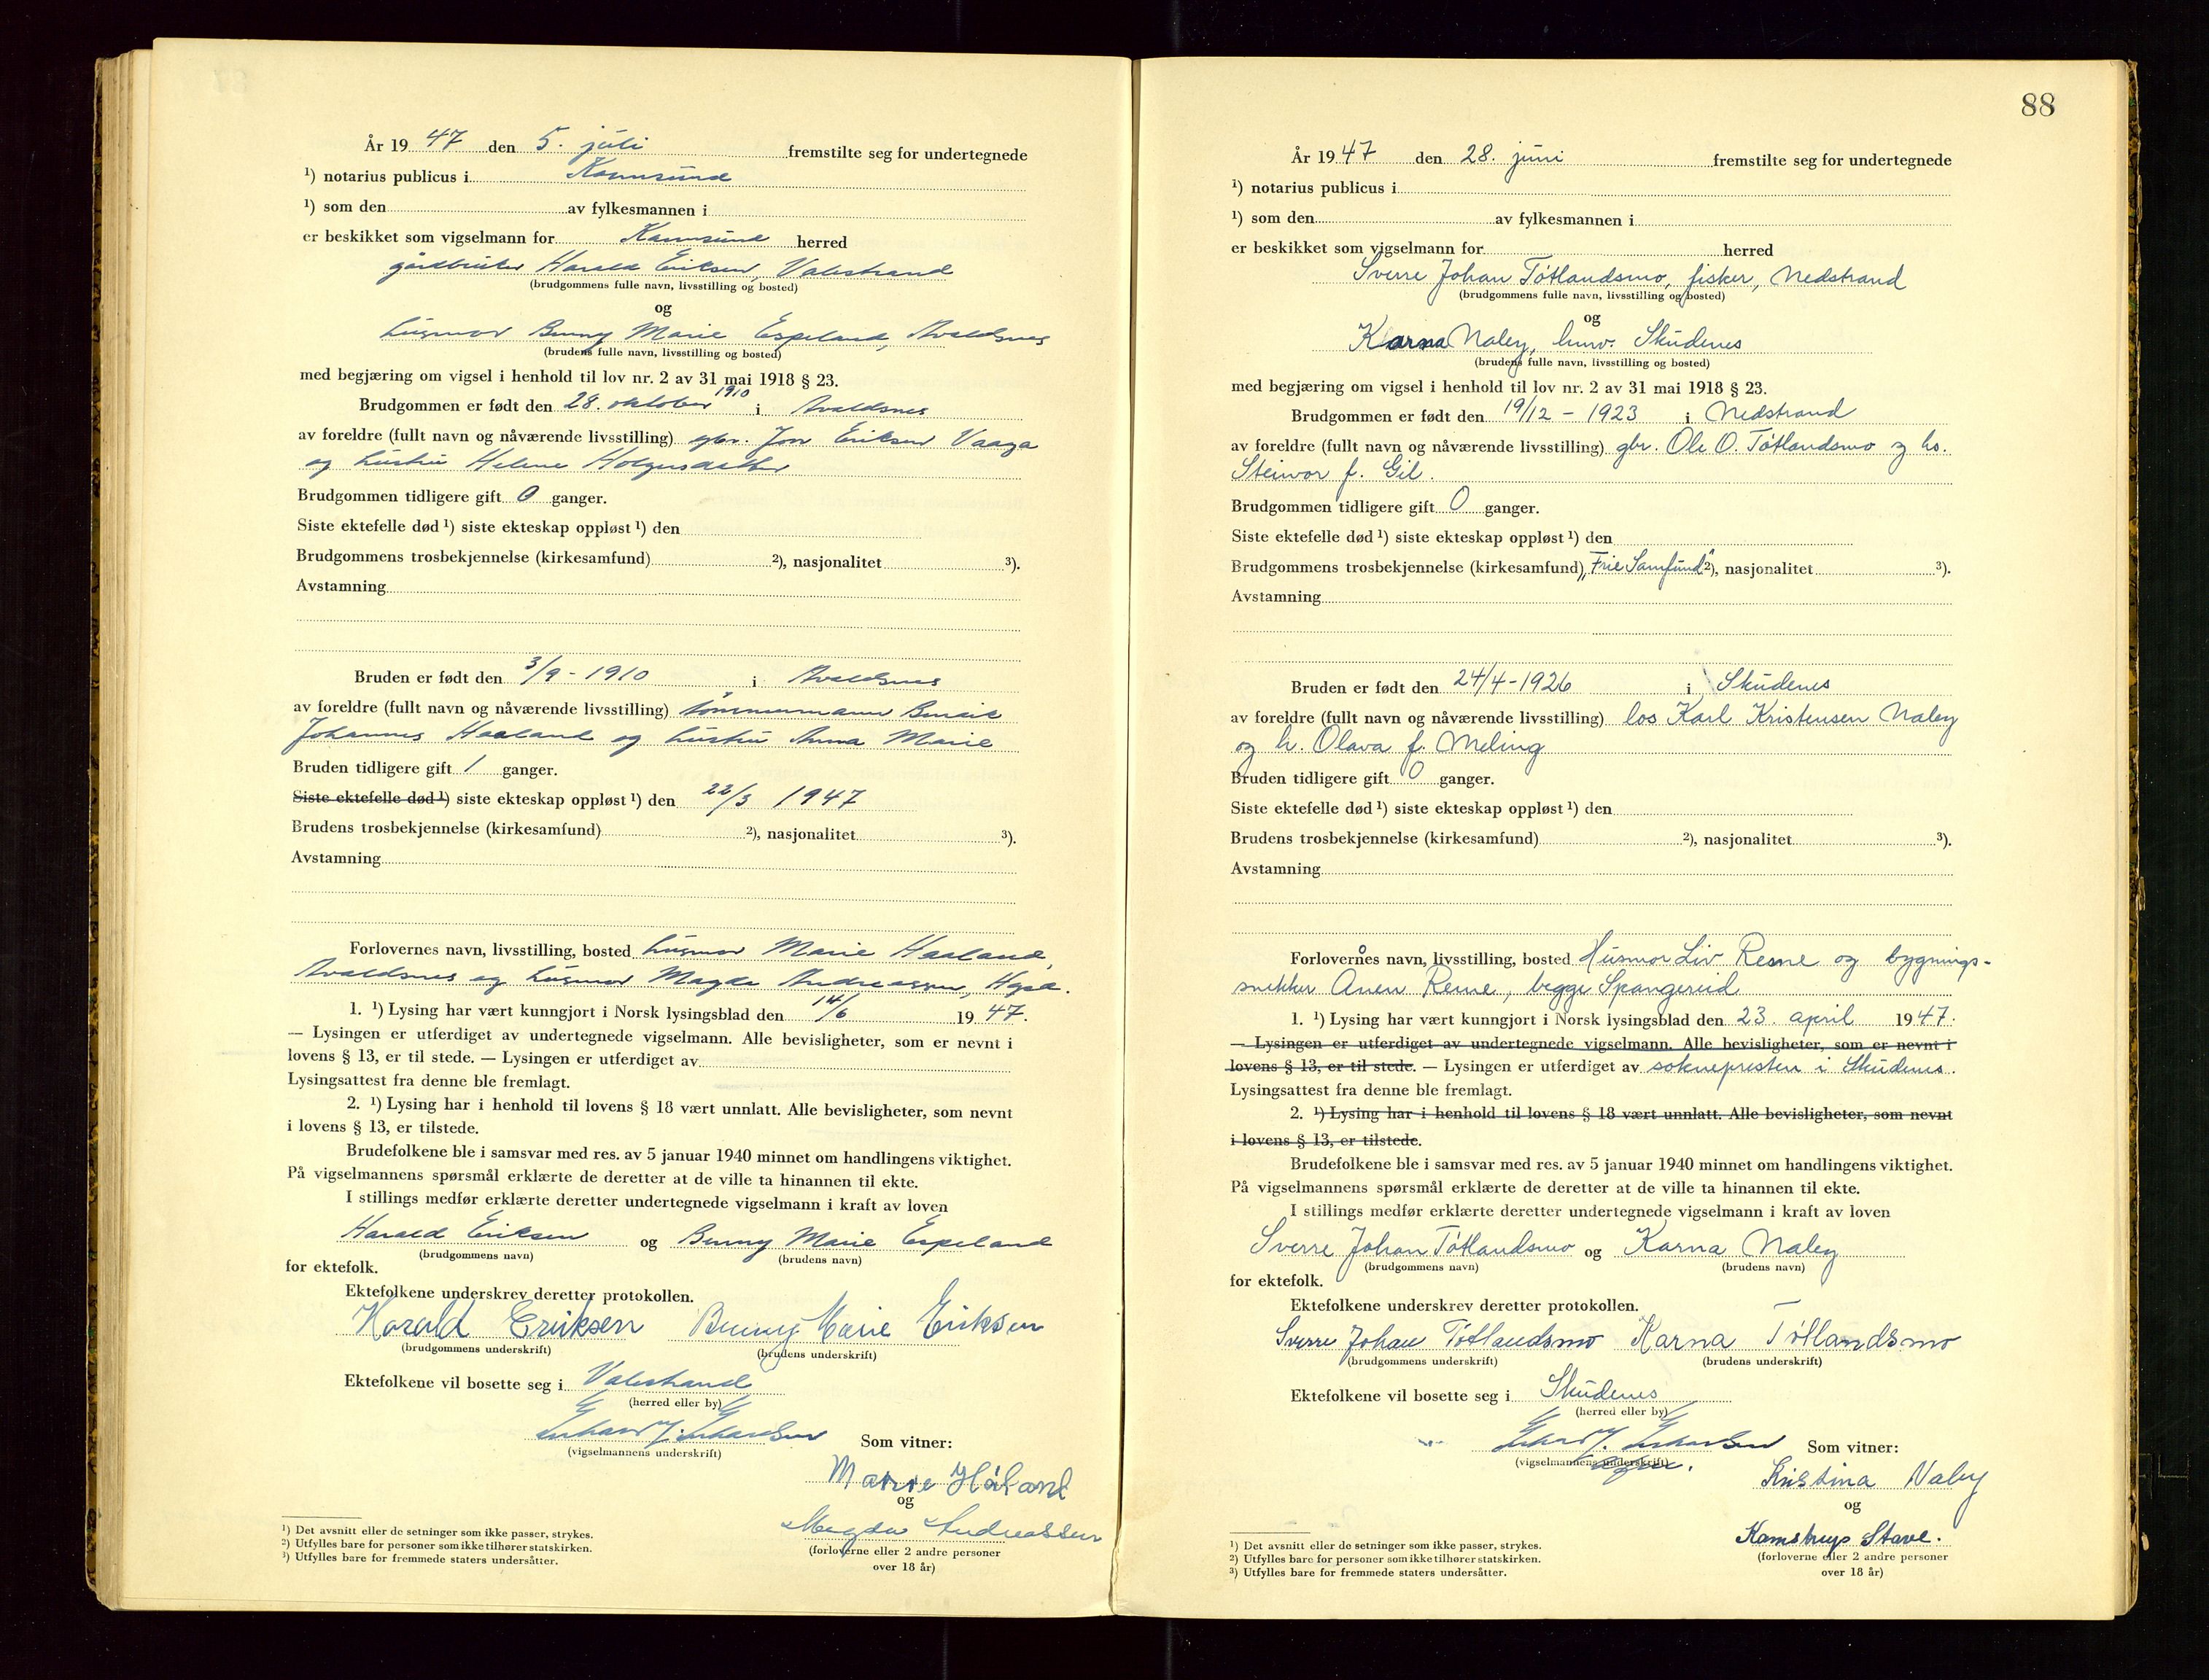 År 19 47 den 5. juli fremstilte seg for undertegnede
¹) notarius publicus i Karmsund
¹) som den av fylkesmannen i
er beskikket som vigselmann for Karmsund herred
gårdbruker Harald Eriksen, Valestrand
(brudgommens fulle navn, livsstilling og bosted)
og
husmor Benny Marie Espeland, Avaldsnes
(brudens fulle navn, livsstilling og bosted)
med begjæring om vigsel i henhold til lov nr. 2 av 31 mai 1918 § 23.
Brudgommen er født den 28. oktober 1910 i Avaldsnes
av foreldre (fullt navn og nåværende livsstilling) gbr. Jon Eriksen Vaaga
og hustru Helene Holgersdatter
Brudgommen tidligere gift 0 ganger.
Siste ektefelle død ¹) siste ekteskap oppløst ¹) den
Brudgommens trosbekjennelse (kirkesamfund) ²), nasjonalitet ³).
Avstamning
Bruden er født den 3/9 - 1910 i Avaldsnes
av foreldre (fullt navn og nåværende livsstilling) tømmermann
Johannes Haaland og hustru Anna Marie
Bruden tidligere gift 1 ganger.
Siste ektefelle død ¹) siste ekteskap oppløst ¹) den 22/3 1947
Brudens trosbekjennelse (kirkesamfund) ²), nasjonalitet ³).
Avstamning
Forlovernes navn, livsstilling, bosted husmor Marie Haaland,
Avaldsnes og husmor Magda Andreassen, Hgsd.
1. ¹) Lysing har vært kunngjort i Norsk lysingsblad den 14/6 19 47.
— Lysingen er utferdiget av undertegnede vigselmann. Alle bevisligheter, som er nevnt i
lovens § 13, er til stede. — Lysingen er utferdiget av
Lysingsattest fra denne ble fremlagt.
2. ¹) Lysing har i henhold til lovens § 18 vært unnlatt. Alle bevisligheter, som nevnt
i lovens § 13, er tilstede.
Brudefolkene ble i samsvar med res. av 5 januar 1940 minnet om handlingens viktighet.
På vigselmannens spørsmål erklærte de deretter at de ville ta hinannen til ekte.
I stillings medfør erklærte deretter undertegnede vigselmann i kraft av loven
Harald Eriksen og Benny Marie Espeland
(brudgommens navn) (brudens navn)
for ektefolk.
Ektefolkene underskrev deretter protokollen.
Harald Eriksen Benny Marie Eriksen
(brudgommens underskrift) (brudens underskrift)
Ektefolkene vil bosette seg i Valestrand
(herred eller by)
(vigselmannens underskrift)
Som vitner:
Marie Håland
og
Magda Andreassen
(forloverne eller 2 andre personer
over 18 år)
¹) Det avsnitt eller de setninger som ikke passer, strykes.
²) Utfylles bare for personer som ikke tilhører statskirken.
³) Utfylles bare for fremmede staters undersåtter.
88
År 19 47 den 28. juni fremstilte seg for undertegnede
¹) notarius publicus i
¹) som den av fylkesmannen i
er beskikket som vigselmann for herred
Sverre Johan Tøtlandsmo, fisker, Nedstrand
(brudgommens fulle navn, livsstilling og bosted)
og
Karna Naley, husv. Skudenes
(brudens fulle navn, livsstilling og bosted)
med begjæring om vigsel i henhold til lov nr. 2 av 31 mai 1918 § 23.
Brudgommen er født den 19/12 - 1923 i Nedstrand
av foreldre (fullt navn og nåværende livsstilling) gbr. Ole O. Tøtlandsmo og hs.
Steinvor f. Gil.
Brudgommen tidligere gift 0 ganger.
Siste ektefelle død ¹) siste ekteskap oppløst ¹) den
Brudgommens trosbekjennelse (kirkesamfund) „Frie Samfund" ²), nasjonalitet ³).
Avstamning
Bruden er født den 24/4 - 1926 i Skudenes
av foreldre (fullt navn og nåværende livsstilling) los Karl Kristensen Naley
og h. Olava f. Meling
Bruden tidligere gift 0 ganger.
Siste ektefelle død ¹) siste ekteskap oppløst ¹) den
Brudens trosbekjennelse (kirkesamfund) ²), nasjonalitet ³).
Avstamning
Forlovernes navn, livsstilling, bosted Husmor Liv Resne og bygnings-
snekker Anen Resne, begge Spangereid
1. ¹) Lysing har vært kunngjort i Norsk lysingsblad den 23. april 19 47.
— Lysingen er utferdiget av undertegnede vigselmann. Alle bevisligheter, som er nevnt i
lovens § 13, er til stede. — Lysingen er utferdiget av soknepresten i Skudenes.
Lysingsattest fra denne ble fremlagt.
2. ¹) Lysing har i henhold til lovens § 18 vært unnlatt. Alle bevisligheter, som nevnt
i lovens § 13, er tilstede.
Brudefolkene ble i samsvar med res. av 5 januar 1940 minnet om handlingens viktighet.
På vigselmannens spørsmål erklærte de deretter at de ville ta hinannen til ekte.
I stillings medfør erklærte deretter undertegnede vigselmann i kraft av loven
Sverre Johan Tøtlandsmo og Karna Naley
(brudgommens navn) (brudens navn)
for ektefolk.
Ektefolkene underskrev deretter protokollen.
Sverre Johan Tøtlandsmo Karna Tøtlandsmo
(brudgommens underskrift) (brudens underskrift)
Ektefolkene vil bosette seg i Skudenes
(herred eller by)
(vigselmannens underskrift)
Som vitner:
Kristina Naley
og
Kamstrup Stave.
(forloverne eller 2 andre personer
over 18 år)
¹) Det avsnitt eller de setninger som ikke passer, strykes.
²) Utfylles bare for personer som ikke tilhører statskirken.
³) Utfylles bare for fremmede staters undersåtter.